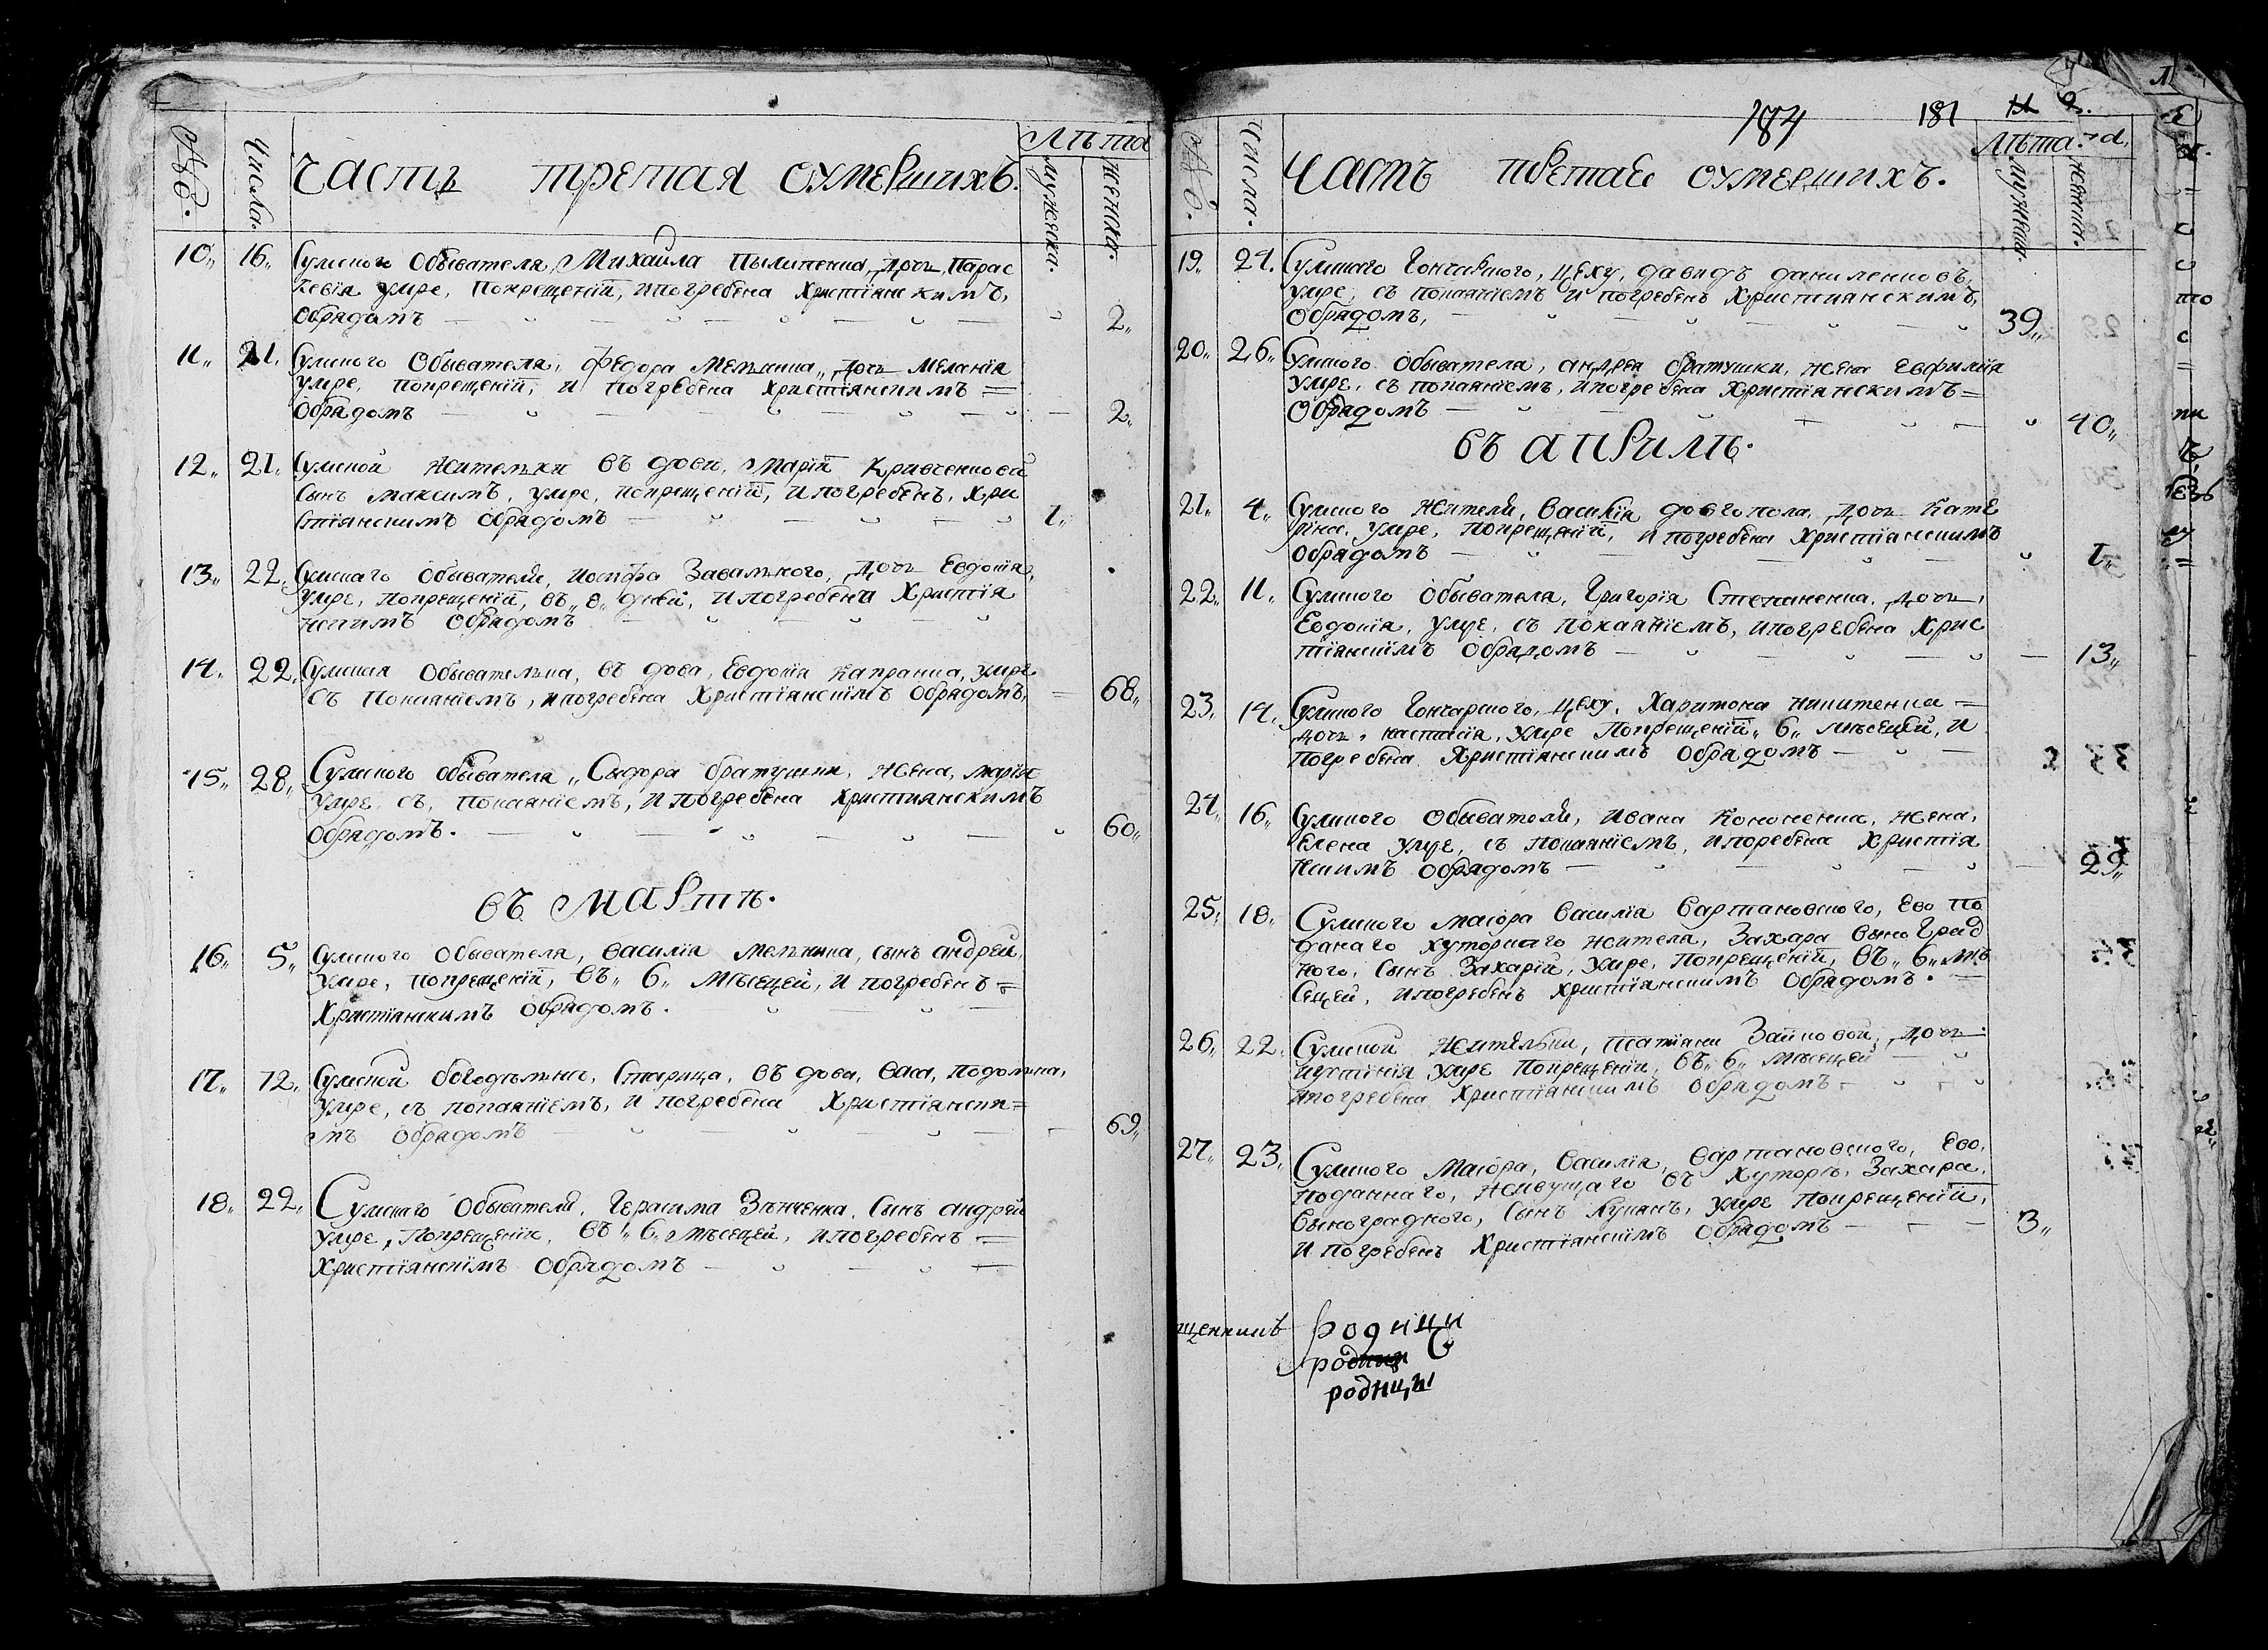 №. Числа. Часть третая оумершихъ. Лѣта
мужеска. женска.
10„ 16„ Сумского Обывателя, Михаила Пылипенка, дочь, Парас
кевія умре, Покрещеніи, ипогребена Христіянскимъ,
Обрядомъ 2„
11„ 21. Сумского Обывателя, Федора Мельника, дочь Меланія
умре, покрещеніи, и погребена Христіянскимъ =
Обрядомъ 2„
12„ 21„ Сумской жительки въ дови, Маріи Кривченковой
Сынъ Максимъ, умре, покрещеніи, и погребенъ, Хри
стіянскимъ Обрядомъ 1„
13„ 22„ Сумскаго Обывателя, Иосифа Завального, дочь Евдокія,
умре, покрещеніи, въ„ 8„ дней, ипогребена Христія
нскимъ Обрядомъ
14. 22„ Сумская Обывателька, въ дова, Евдокія Капранка, умре
съ Покаяніемъ, ипогребена Христіянскімъ Обрядомъ, 68„
15„ 28„ Сумского обывателя „Сидора братушки, жена, марія
умре, съ, покаяніемъ, и погребена християнскимъ
Обрядомъ. 60„
въ Мартѣ.
16„ 5„ Сумского Обывателя, василія мельника, сынъ андрей,
умре, покрещеніи, въ„ 6„ Мѣсецей, и погребенъ =
Христіянскимъ Обрядомъ.
17„ 12„ Сумской богодѣльнѣ, Старица, въ дова, васа, подолька,
умре, съ покаяніемъ, и погребена Христіянски=
мъ Обрядомъ 69„
18„ 22„ Сумскаго Обывателя, Герасима Зѣнченка, Сынъ андрей
умре, Покрещеніи, въ„ 6„ мѣсецей, ипогребенъ =
Христіянскімъ Обрядомъ
184 181
№. Числа. Часть третае оумершихъ. Лѣта.
мужеска женска.
19„ 24. Сумскаго Гончарного, цеху, давидъ даниленковъ,
умре, съ покаяніемъ и погребенъ Християнскимъ,
Обрядомъ, 39„
20„ 26„ Сумского Обывателя, андрея братушки, жена Евфимія
умре, съ покаяніемъ, ипогребена Христіянскимъ=
Обрядомъ 40„
въ априлѣ.
21„ 4„ Сумского жителя, Василія довгопола, дочь Кате
рина, умре, покрещеніи, и погребена Христіянскимъ
Обрядомъ 1„
22„ 11„ Сумского Обывателя, Григорія Степаненка, дочь,
Евдокія, умре, съ покаяніемъ, ипогребена Хрис
тіянскімъ Обрядомъ 13„
23„ 14„ Сумского Гончарского, цеху, Харитона никитенка =
дочь, настасія, умре Покрещеніи„ 6„ мѣсецей, и
погребена Христіянскимъ Обрядомъ
24„ 16„ Сумского Обывателя, ивана Кононенка, жена,
Елена умре, съ покаяніемъ, ипоребена Христія
нскимъ Обрядомъ 29„
25„ 18„ Сумского маіора Василія Вартановского, Ево по
данаго хуторнаго жителя, Захара Виноград
ного, Сынъ Захарій, умре, покрещеніи, въ„ 6„ мѣ
сецей, ипогребенъ христіянскимъ Обрядомъ.
26„ 22„ Сумской жительки, татіяни Зайковой, дочь
иустинія умре Покрещеніи, въ„ 6„ мѣсецей
ипогребена Христіянскимъ Обрядомъ
27„ 23„ Сумского Маіора, василія, вартановского, Ево,
поданнаго, живущаго въ Хуторѣ, Захара,
виноградного, Сынъ Лукянъ, умре Покрещеніи,
и погребенъ Христіянскімъ Обрядомъ 3„
щенникъ родици
родици
родицы